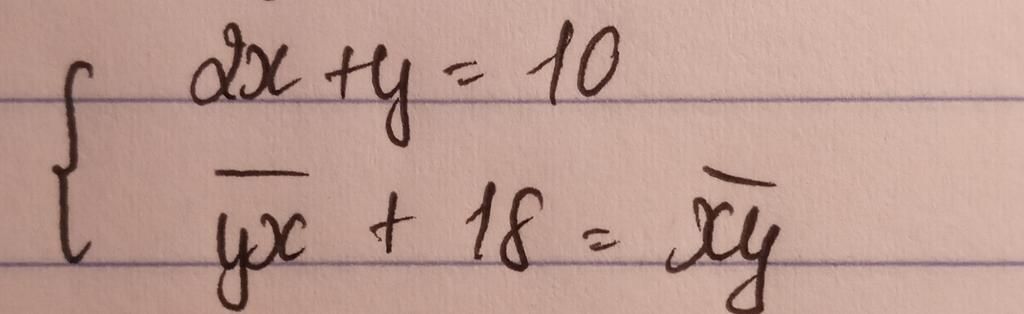 2x + y = 10
y̅x̅ + 18 = x̅y̅